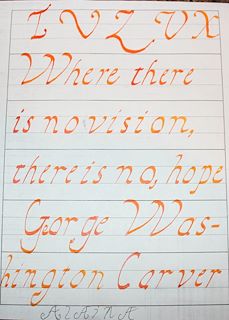 I V Z V X
Where there
is no vision,
there is no, hope
George Was-
hington Carver